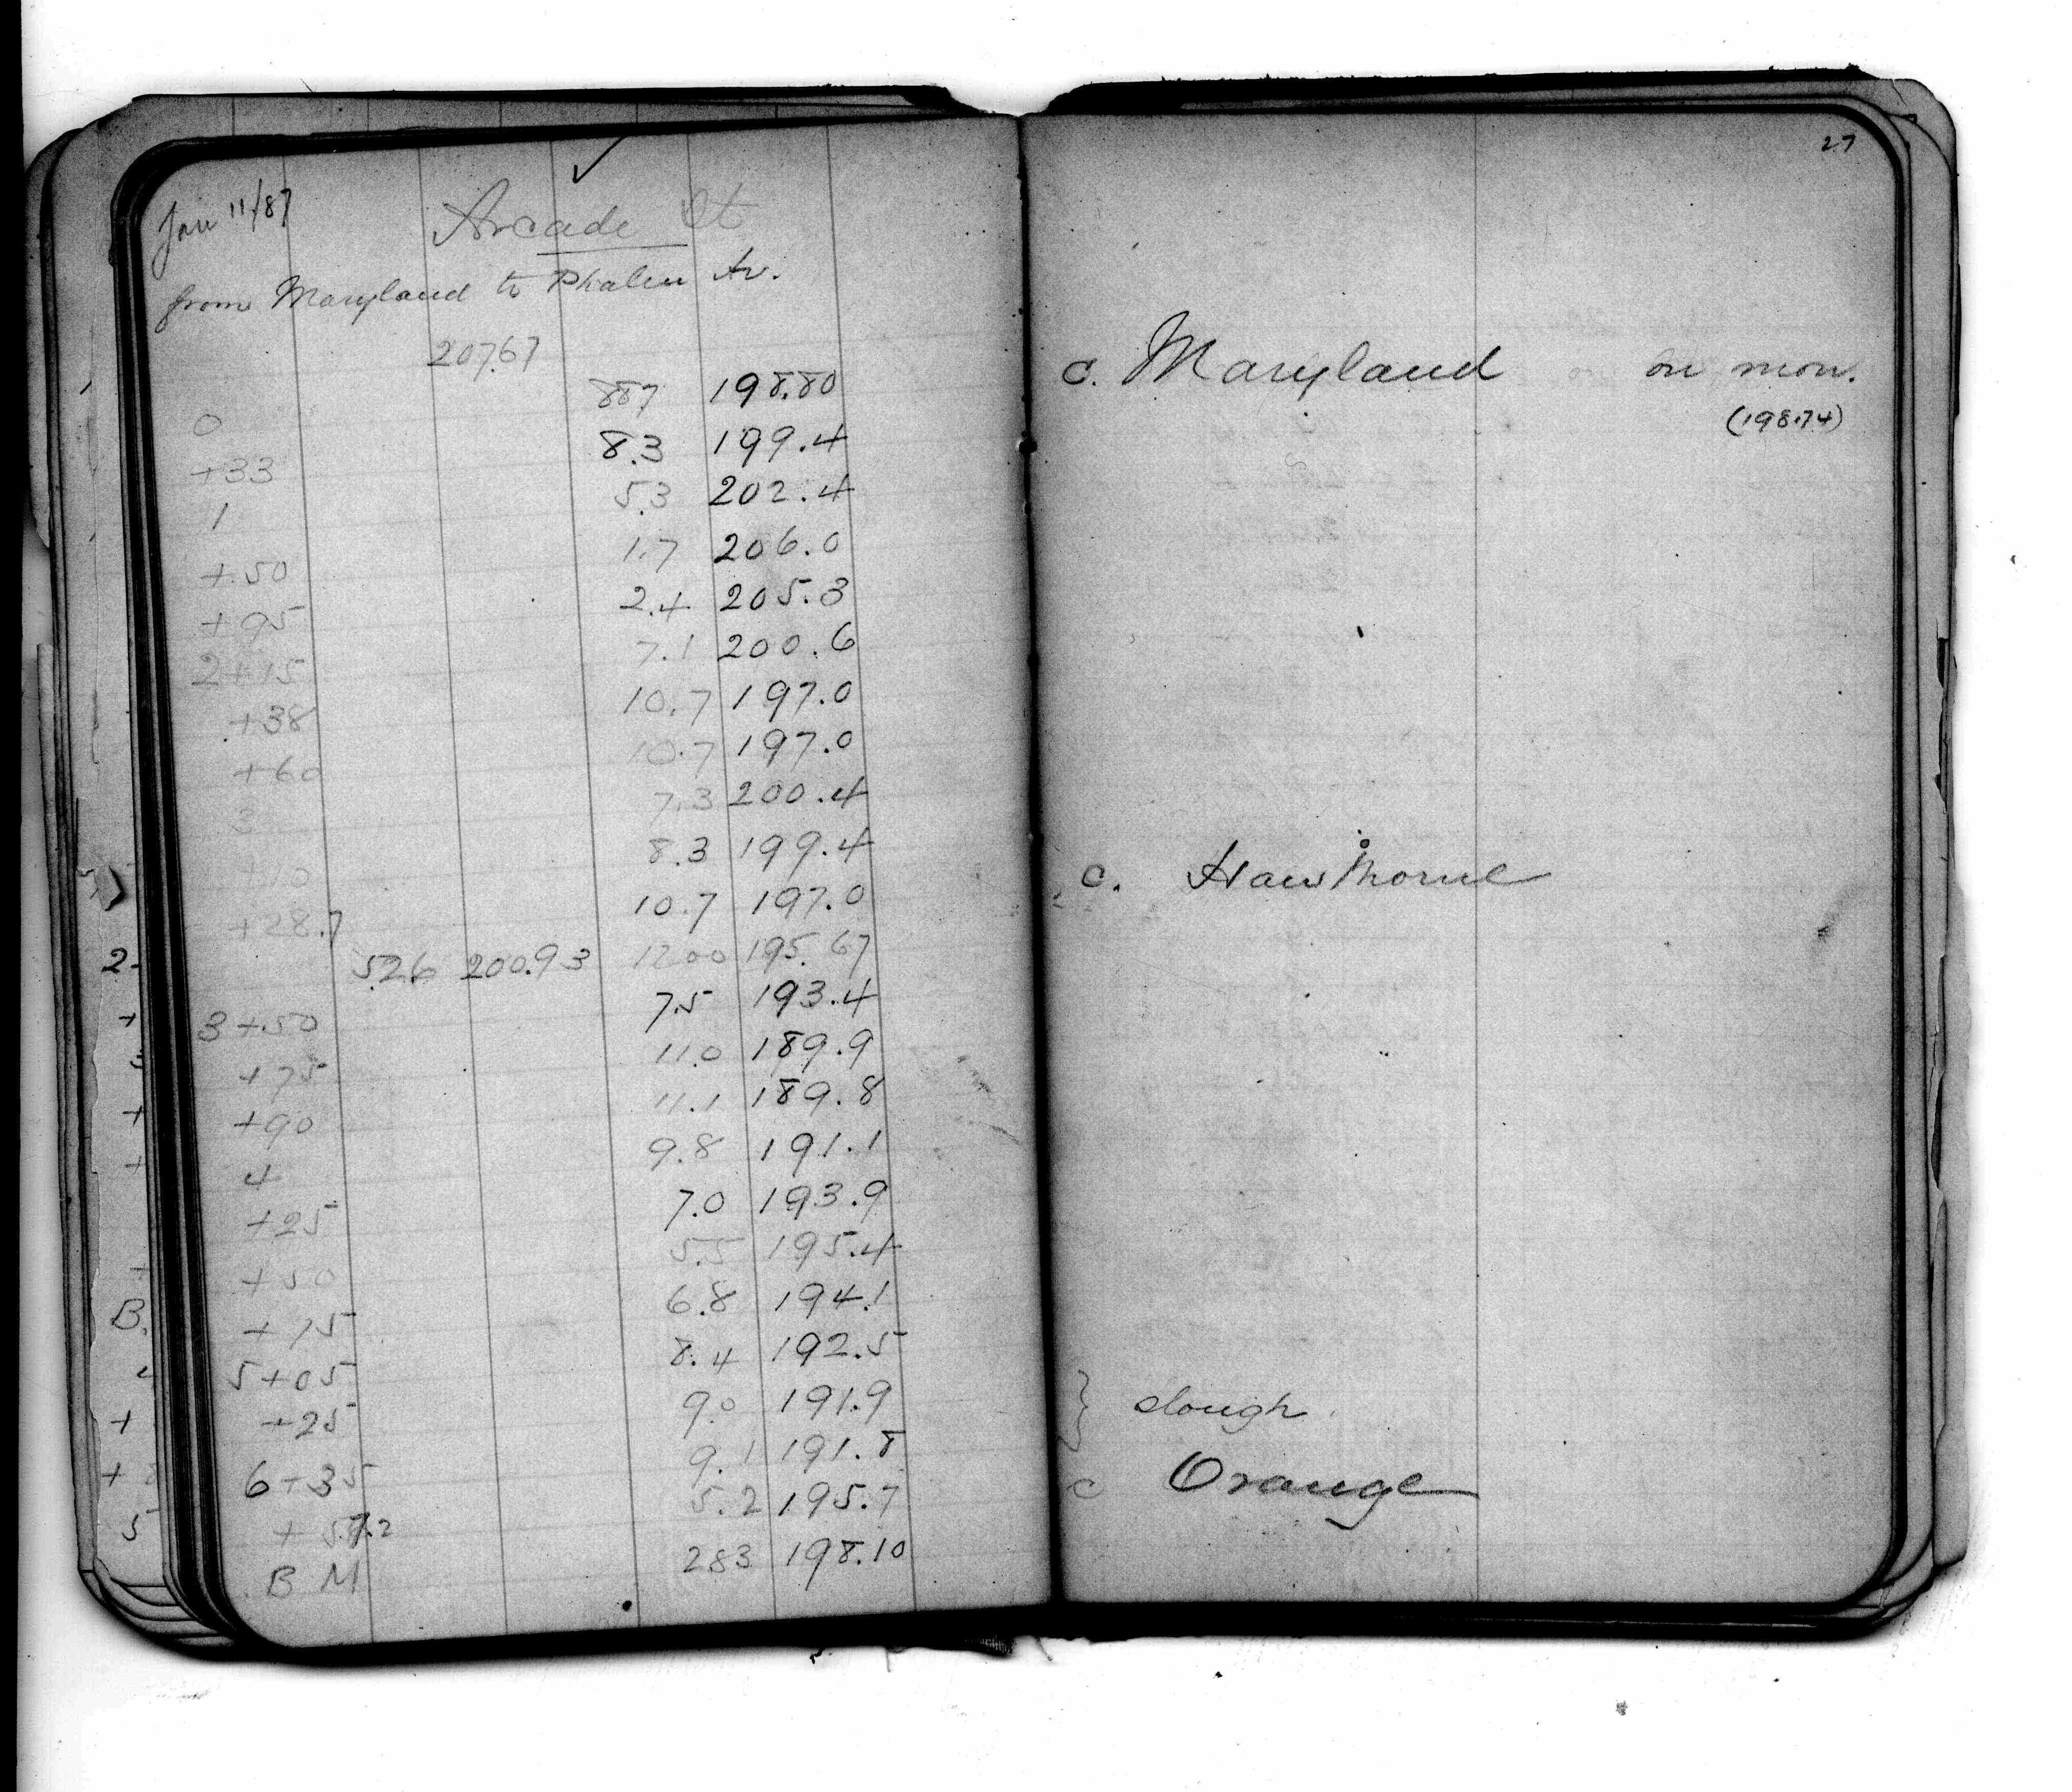 27
Jan 11/87
Arcade St
from Maryland to Phalen Av.
207.67
0 8.87 198.80 c. Maryland on mon.
(198.74)
+33 8.3 199.4
1 5.3 202.4
+50 1.7 206.0
+95 2.4 205.3
2+15 7.1 200.6
+38 10.7 197.0
+60 10.7 197.0
3 7.3 200.4
+10 8.3 199.4 c. Hawthorne
+28.7 10.7 197.0
5.26 200.93 12.00 195.67
3+50 7.5 193.4
+75 11.0 189.9
+90 11.1 189.8
4 9.8 191.1
+25 7.0 193.9
+50 5.5 195.4
+75 6.8 194.1
5+05 8.4 192.5
+25 9.0 191.9 } slough
6+35 9.1 191.8
+57.2 5.2 195.7 c Orange
B M 283 198.10